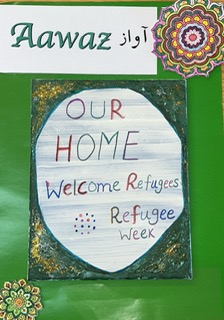 Aawaz آواز
OUR
HOME
Welcome Refugees
Refugee
Week